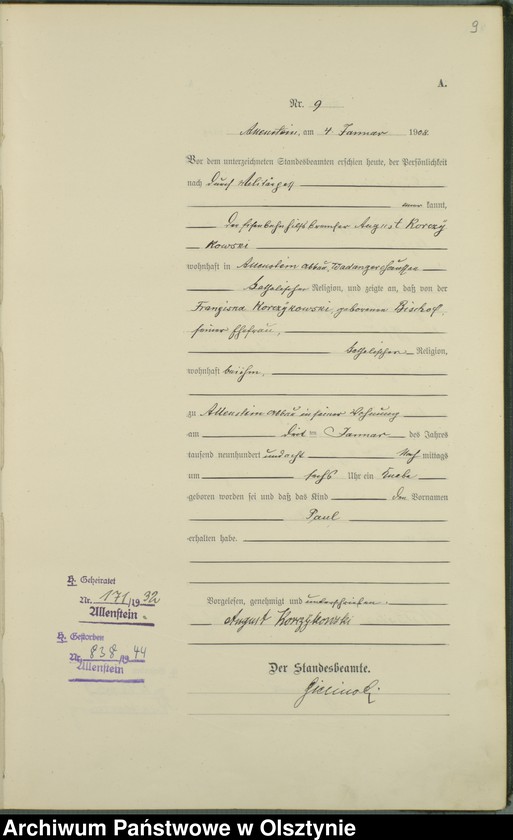 9
A.
Nr. 9
Allenstein, am 4 Januar 1908.
Vor dem unterzeichneten Standesbeamten erschien heute, der Persönlichkeit
nach durch Militärpaß
kannt,
der Eisenbahnhilfsbremser August Korczy
kowski
wohnhaft in Allenstein Abbau, Wadanger Chaussee
katholischer Religion, und zeigte an, daß von der
Franziska Korczykowski, geborenen Bischof,
seiner Ehefrau,
katholischer Religion,
wohnhaft bei ihm,
zu Allenstein Abbau in seiner Wohnung
am drei ten Januar des Jahres
tausend neunhundert und acht Nach mittags
um sechs Uhr ein Knabe
geboren worden sei und daß das Kind den Vornamen
Paul
erhalten habe.
Vorgelesen, genehmigt und unterschrieben.
August Korczykowski
Der Standesbeamte.
H. Geheiratet
Nr. 171/1932
Allenstein.
H. Gestorben
Nr. 838/1944
Allenstein
Archiwum Państwowe w Olsztynie